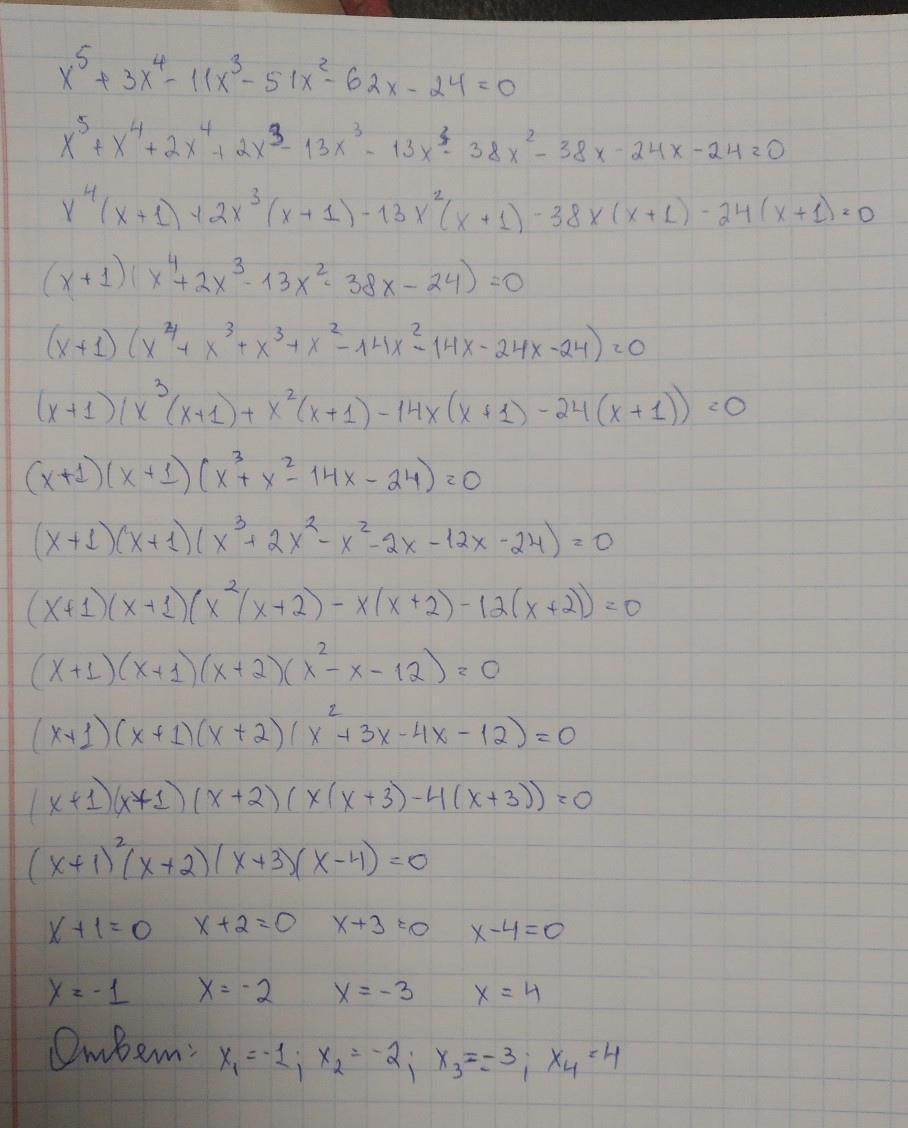 x⁵ + 3x⁴ - 11x³ - 51x² - 62x - 24 = 0
x⁵ + x⁴ + 2x⁴ + 2x³ - 13x³ - 13x² - 38x² - 38x - 24x - 24 = 0
x⁴(x+1) + 2x³(x+1) - 13x²(x+1) - 38x(x+1) - 24(x+1) = 0
(x+1)(x⁴ + 2x³ - 13x² - 38x - 24) = 0
(x+1)(x⁴ + x³ + x³ + x² - 14x² - 14x - 24x - 24) = 0
(x+1)(x³(x+1) + x²(x+1) - 14x(x+1) - 24(x+1)) = 0
(x+1)(x+1)(x³ + x² - 14x - 24) = 0
(x+1)(x+1)(x³ + 2x² - x² - 2x - 12x - 24) = 0
(x+1)(x+1)(x²(x+2) - x(x+2) - 12(x+2)) = 0
(x+1)(x+1)(x+2)(x² - x - 12) = 0
(x+1)(x+1)(x+2)(x² + 3x - 4x - 12) = 0
(x+1)(x+1)(x+2)(x(x+3) - 4(x+3)) = 0
(x+1)²(x+2)(x+3)(x-4) = 0
x+1=0 x+2=0 x+3=0 x-4=0
x=-1 x=-2 x=-3 x=4
Ответ: x₁=-1; x₂=-2; x₃=-3; x₄=4